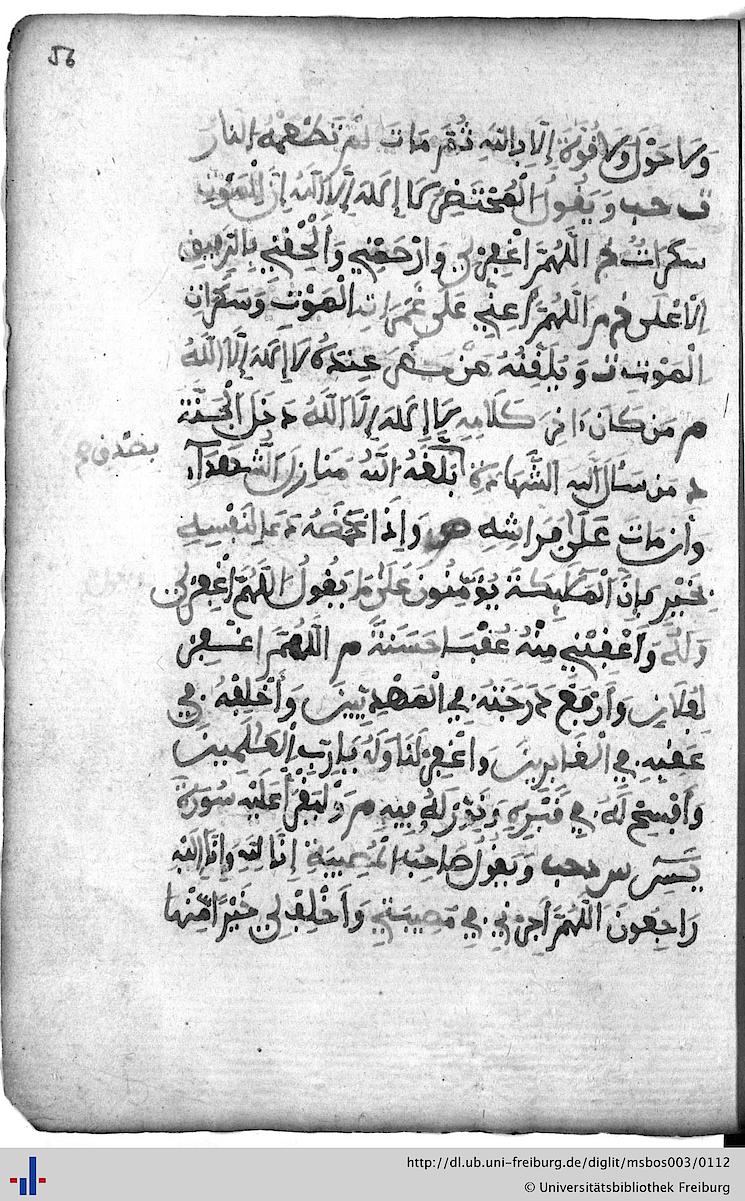 56
وَلَا حَوْلَ وَلَا قُوَّةَ إِلَّا بِاللَّهِ ثُمَّ مَاتَ لَمْ تَطْعَمْهُ النَّارُ
ت حب وَيَقُولُ الْمُحْتَضَرُ لَا إِلَهَ إِلَّا اللَّهُ إِنَّ لِلْمَوْتِ
سَكَرَاتٍ خ اللَّهُمَّ اغْفِرْ لِي وَارْحَمْنِي وَأَلْحِقْنِي بِالرَّفِيقِ
الْأَعْلَى خ م اللَّهُمَّ أَعِنِّي عَلَى غَمَرَاتِ الْمَوْتِ وَسَكَرَاتِ
الْمَوْتِ ت وَيُلَقِّنُهُ مَنْ حَضَرَ عِنْدَهُ لَا إِلَهَ إِلَّا اللَّهُ
م مَنْ كَانَ آخِرَ كَلَامِهِ لَا إِلَهَ إِلَّا اللَّهُ دَخَلَ الْجَنَّةَ
د مَنْ سَأَلَ اللَّهَ الشَّهَادَةَ بَلَّغَهُ اللَّهُ مَنَازِلَ الشُّهَدَآءِ
بصدق
وَإِنْ مَاتَ عَلَى فِرَاشِهِ وَإِذَا غَمَّضَهُ دَعَا لِنَفْسِهِ
بِخَيْرٍ فَإِنَّ الْمَلَائِكَةَ يُؤَمِّنُونَ عَلَى مَا يَقُولُ اللَّهُمَّ اغْفِرْ لِي
وَلَهُ وَأَعْقِبْنِي مِنْهُ عُقْبَا حَسَنَةً م اللَّهُمَّ اغْفِرْ
لِفُلَانٍ وَارْفَعْ دَرَجَتَهُ فِي الْمَهْدِيِّينَ وَاخْلُفْهُ فِي
عَقِبِهِ فِي الْغَابِرِينَ وَاغْفِرْ لَنَا وَلَهُ يَا رَبَّ الْعَالَمِينَ
وَافْسَحْ لَهُ فِي قَبْرِهِ وَنَوِّرْ لَهُ فِيهِ م وَلْيَقْرَأْ عَلَيْهِ سُورَةَ
يس س حب وَيَقُولُ صَاحِبُ الْمُصِيبَةِ إِنَّا لِلَّهِ وَإِنَّا إِلَيْهِ
رَاجِعُونَ اللَّهُمَّ اجُرْنِي فِي مُصِيبَتِي وَاخْلُفْ لِي خَيْرًا مِنْهَا
http://dl.ub.uni-freiburg.de/diglit/msbos003/0112
© Universitätsbibliothek Freiburg